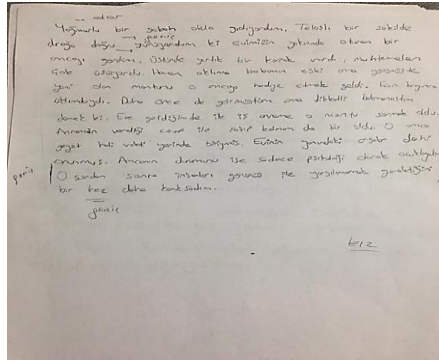 Yağmurlu bir sabah okula gidiyordum. Telaşlı bir şekilde
durağa doğru yürüyordum ki evimizin yakında oturan bir
amcayı gördüm. Üstünde yırtık bir kazak vardı, muhtemelen
çok üşüyordu. Hemen aklıma babamın eski ama görünüşte
yeni olan montunu o amcaya hediye etmek geldi. Gün boyunca
aklımdaydı. Daha önce de görmüştüm ama dikkatli bakmamıştım
demek ki. Eve geldiğimde ilk iş anneme o montu sormak oldu.
Annemin verdiği cevap ile şok bir oldu. O amca
gayet hali vakti yerinde biriymiş. Evinin yanındaki
onunmuş. Amcanın durumunu ise sadece psikoloji olarak açıkladı
O günden sonra insanları görünüşü ile yargılamamak gerektiğini
bir kez daha
KIZ